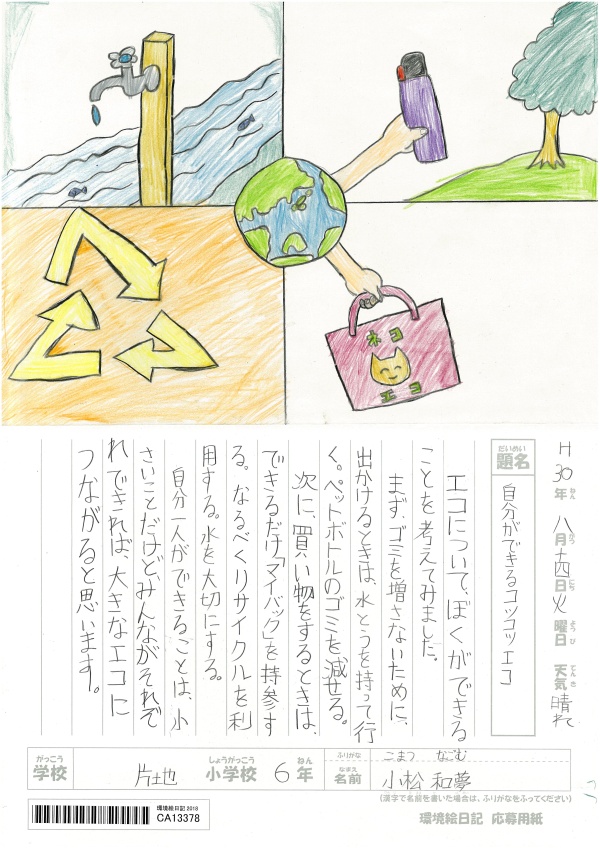 ネコ
エコ
H30年 八月十四日 火曜日 天気 晴れ
ねん がつ にち ようび てんき
だいめい
題名
自分ができるコツコツエコ
エコについて、ぼくができる
ことを考えてみました。
まず、ゴミを増さないために、
出かけるときは、水とうを持って行
く。ペットボトルのゴミを減せる。
次に、買い物をするときは、
できるだけ「マイバック」を持参す
る。なるべくリサイクルを利
用する。水を大切にする。
自分一人ができることは、小
さいことだけど、みんながそれぞ
れできれば、大きなエコに
つながると思います。
がっこう しょうがっこう ねん
学校 片地 小学校 6年
ふりがな こまつ なごむ
なまえ
名前 小松 和夢
(漢字で名前を書いた場合は、ふりがなをふってください)
環境絵日記 2018
CA13378
環境絵日記 応募用紙